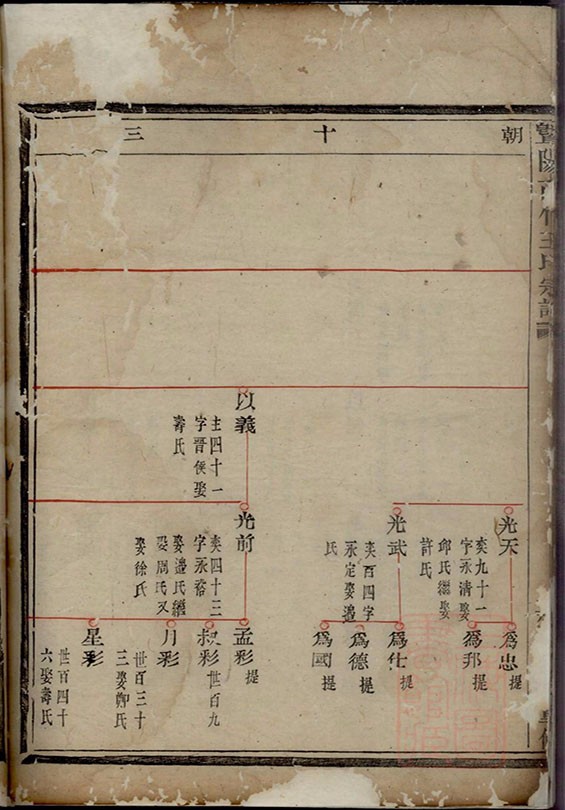 朝
十
三
光天
奕九十一
字永清娶
邱氏繼娶
許氏
爲忠 提
爲邦 提
光武
奕百四字
永定娶邊
氏
爲仕 提
爲德 提
爲國 提
以義
主四十一
字晋侯娶
壽氏
光前
奕四十三
字永裕
娶邊氏繼
娶周氏又
娶徐氏
孟彩 提
叔彩 世百九
月彩
世百三十
三娶鄭氏
星彩
世百四十
六娶壽氏